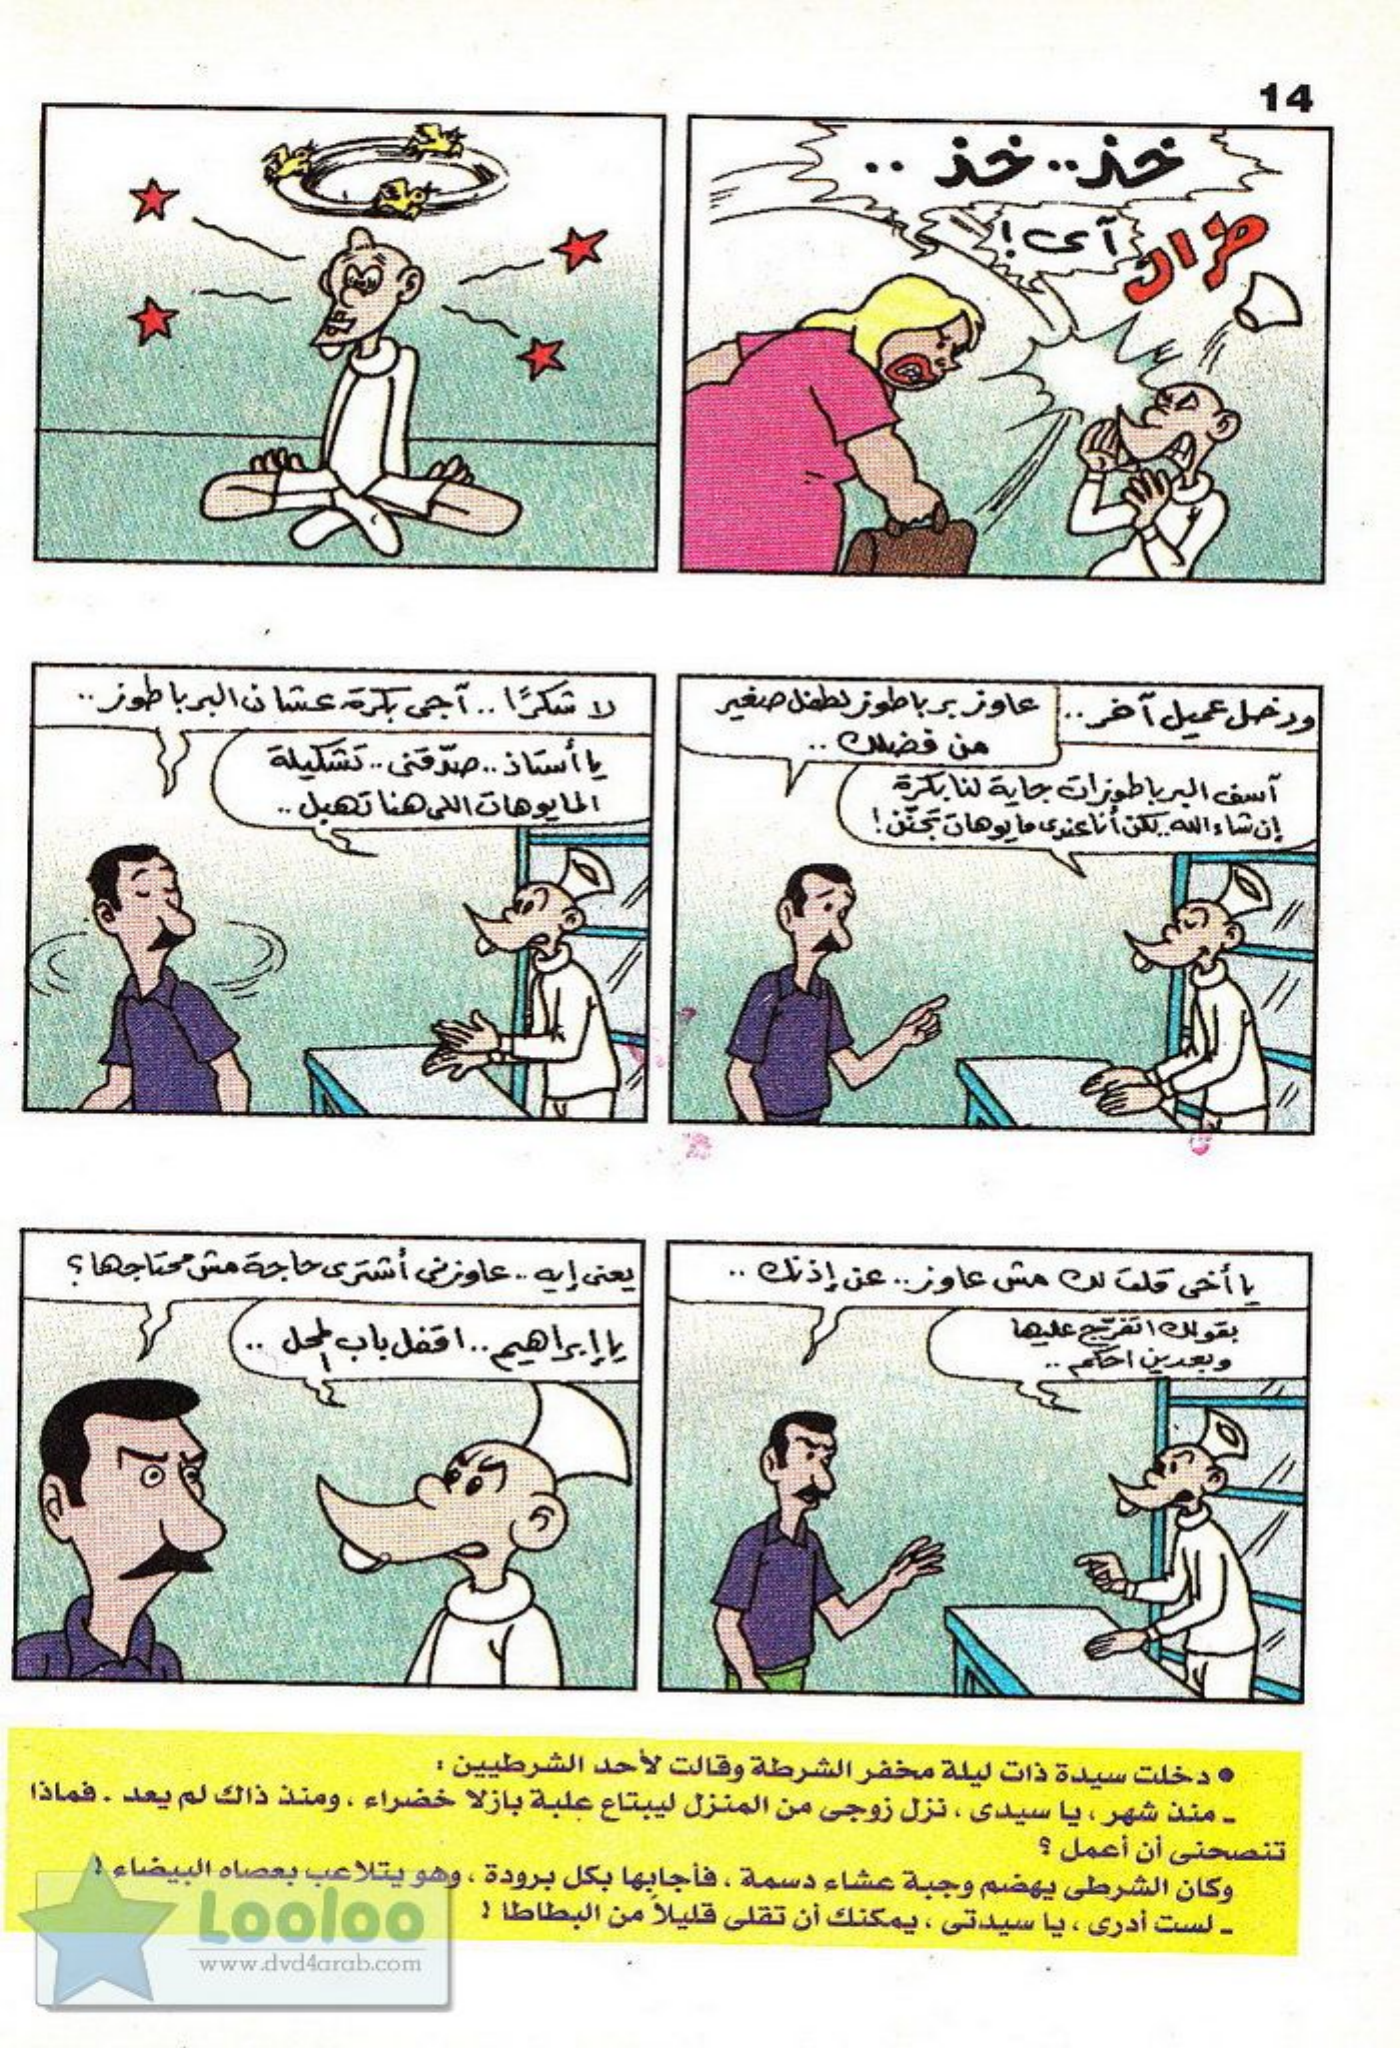 14
خذ.. خذ ..
آى !
طراك
ودخل عميل آخر ..
عاوز برباطوز لطفل صغير
من فضلك ..
آسف البرباطوزات جاية لنا بكرة
إن شاء الله.. لكن أنا عندى مايوهات تجنّن !
لا شكرًا .. آجى بكرة عشان البرباطوز ..
يا أستاذ .. صدّقنى .. تشكيلة
المايوهات اللى هنا تهبل ..
يا أخى قلت لك مش عاوز .. عن إذنك ..
بقولك اتفرّج عليها
وبعدين احكم ..
يعنى إيه .. عاوزنى أشترى حاجة مش محتاجها ؟
يا إبراهيم .. اقفل باب المحل ..
● دخلت سيدة ذات ليلة مخفر الشرطة وقالت لأحد الشرطيين :
ـ منذ شهر ، يا سيدى ، نزل زوجى من المنزل ليبتاع علبة بازلا خضراء ، ومنذ ذاك لم يعد . فماذا
تنصحنى أن أعمل ؟
وكان الشرطى يهضم وجبة عشاء دسمة ، فأجابها بكل برودة ، وهو يتلاعب بعصاه البيضاء !
ـ لست أدرى ، يا سيدتى ، يمكنك أن تقلى قليلاً من البطاطا !
Looloo
www.dvd4arab.com